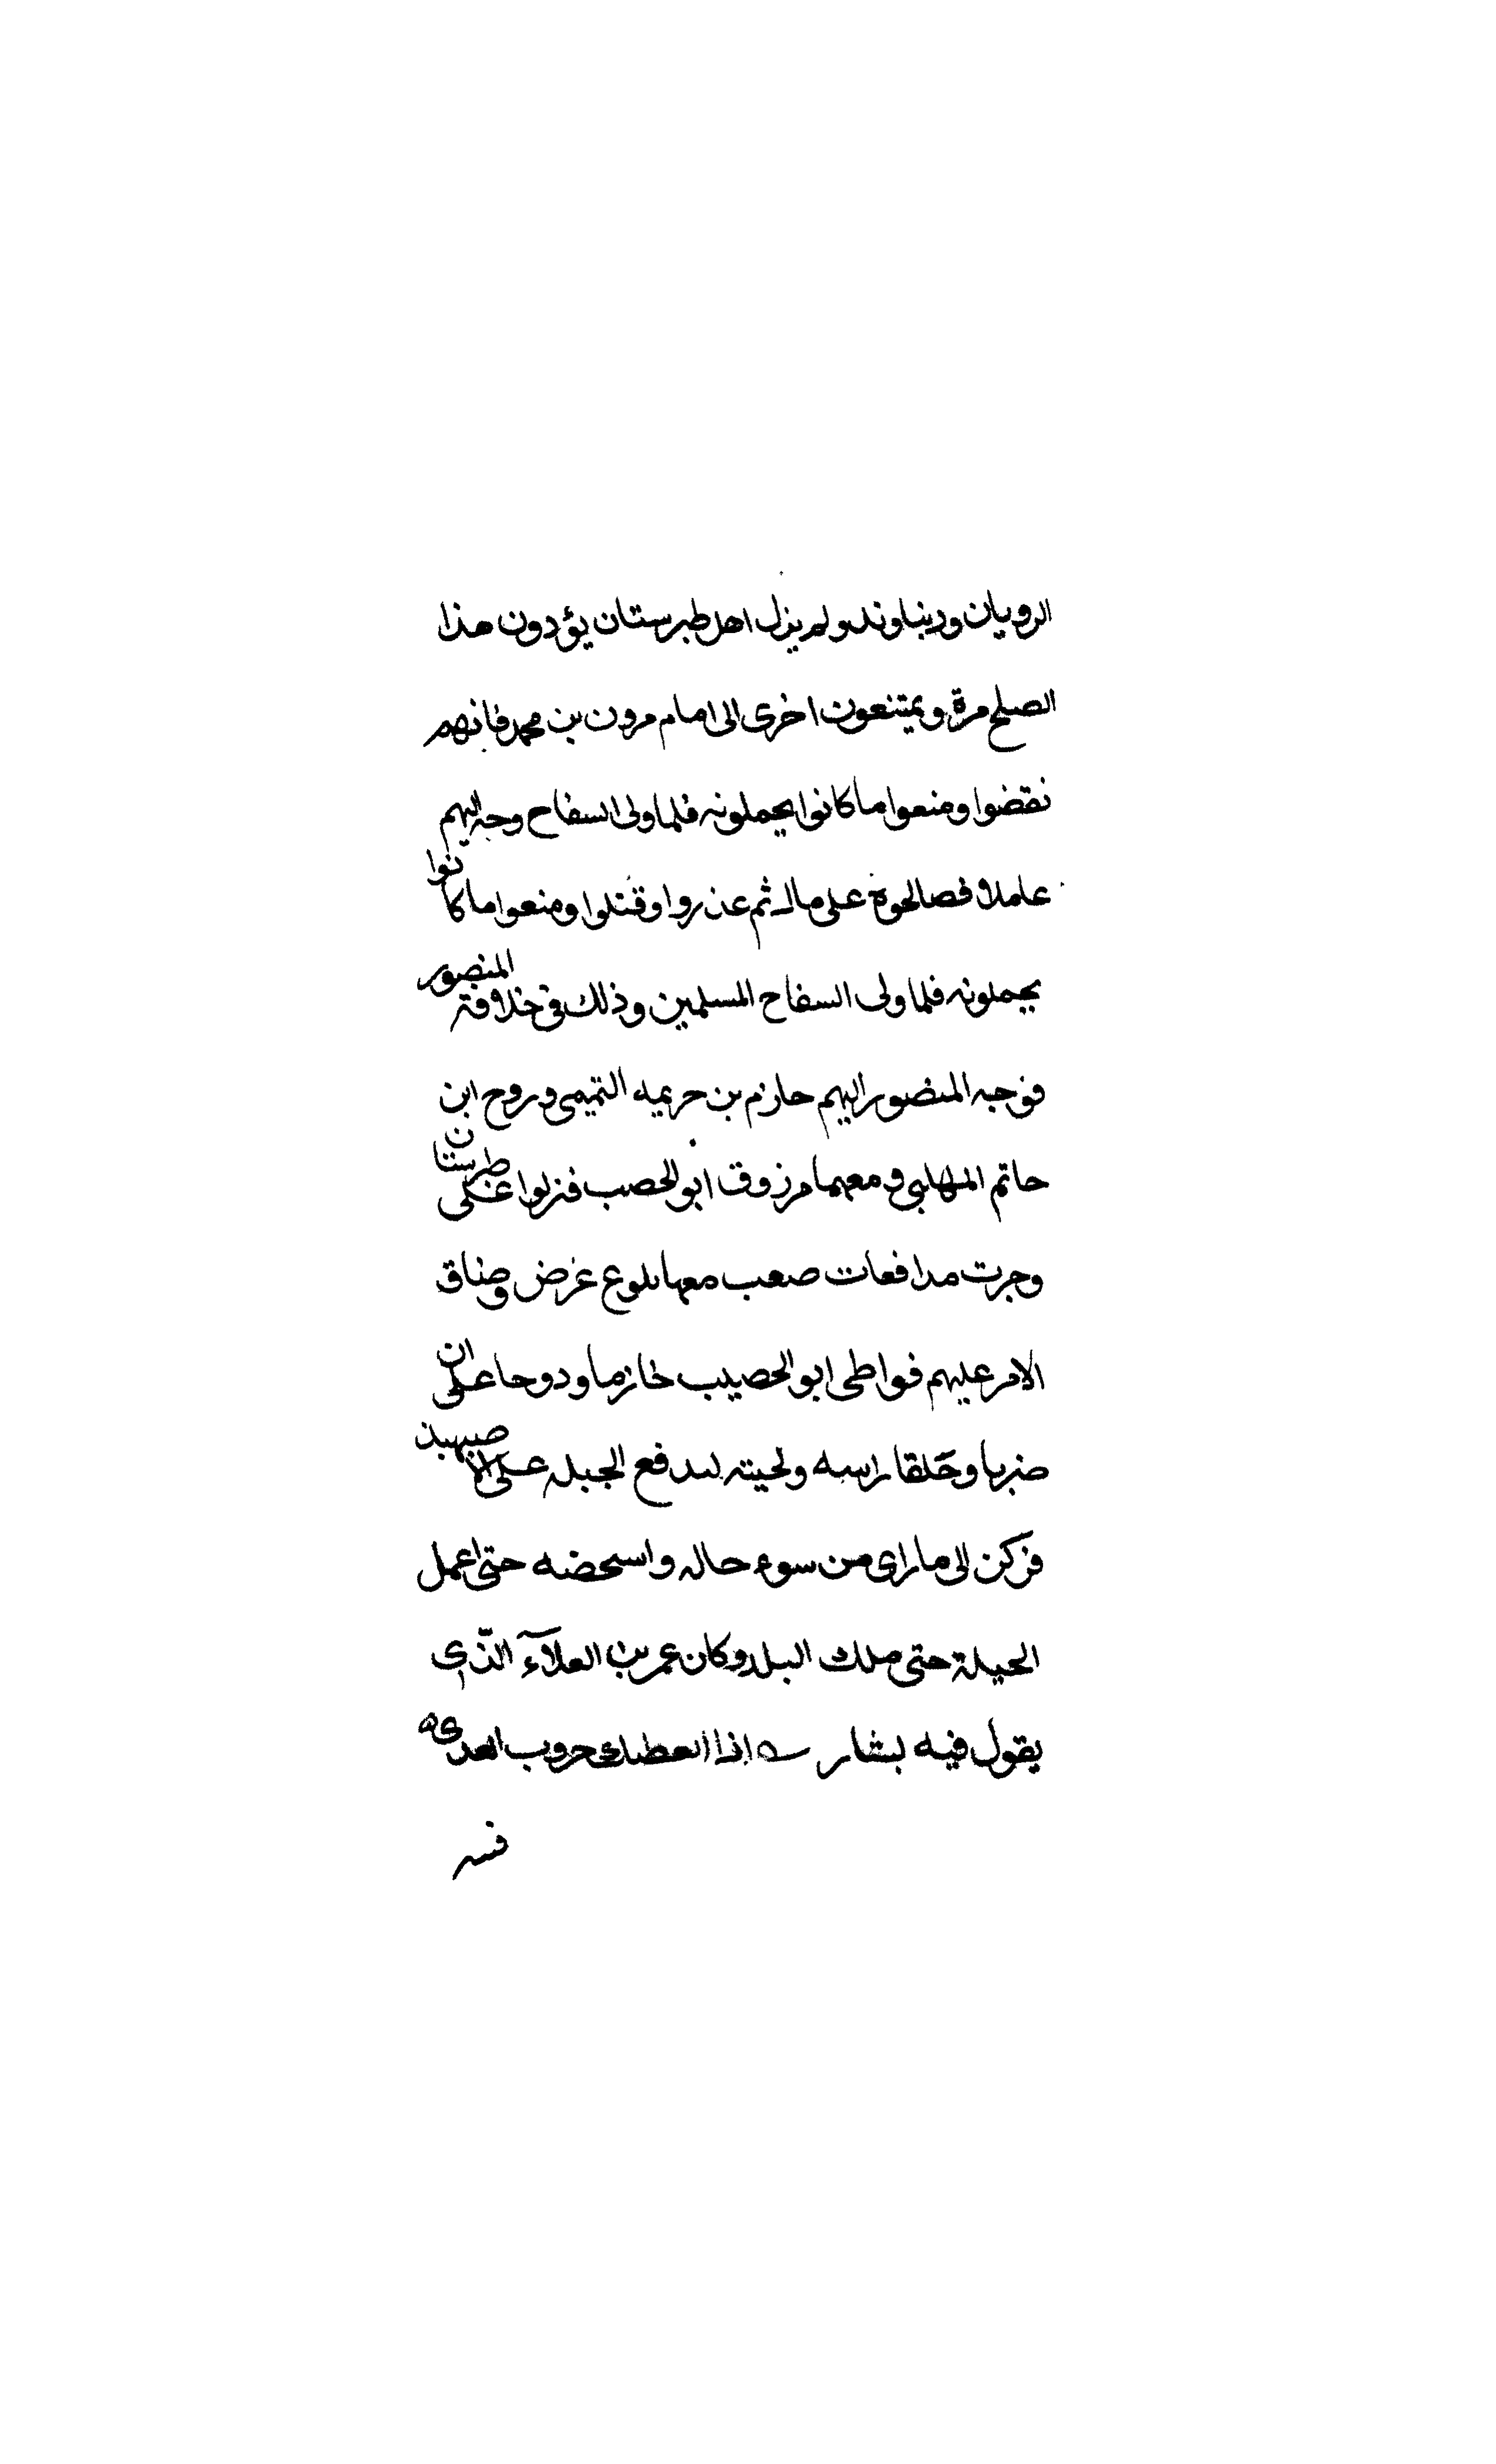 الرويان ودنباوند ولم يزل اهل طبرستان يؤدون هذا
الصلح مرة ويمتنعون اخرى الى امام مرون بن محمد فانهم
نقضوا ومنعوا ما كانوا يحملونه فلما ولى السفاح وجه اليهم
عاملا فصالحوه على مال ثم غدروا وقتلوا ومنعوا ما كانوا
يحملونه فلما ولى السفاح المسلمين وذلك فى خلافة المنصور
فوجه المنصور اليهم حازم بن حريمه التميمى وروح ابن
حاتم المهلبى ومعهما مرزوق ابو الحصب فنزلوا على طبرستان
وجرت مدافعات صعب معها بلوغ غرض وضاق
الامر عليهم فواطى ابو الحصيب خازما ودوحا على ان
ضربا وحلقا راسه ولحيته لىدفع الجبله على الاصبهبذ
فركن الى ما راى من سوء حاله واسحضه حتى اعمل
الحيلة حتى ملك البلد وكان عمر بن العلآء الذى
يقول فيه بشار اذا العطلك حروب العدى
فنبه